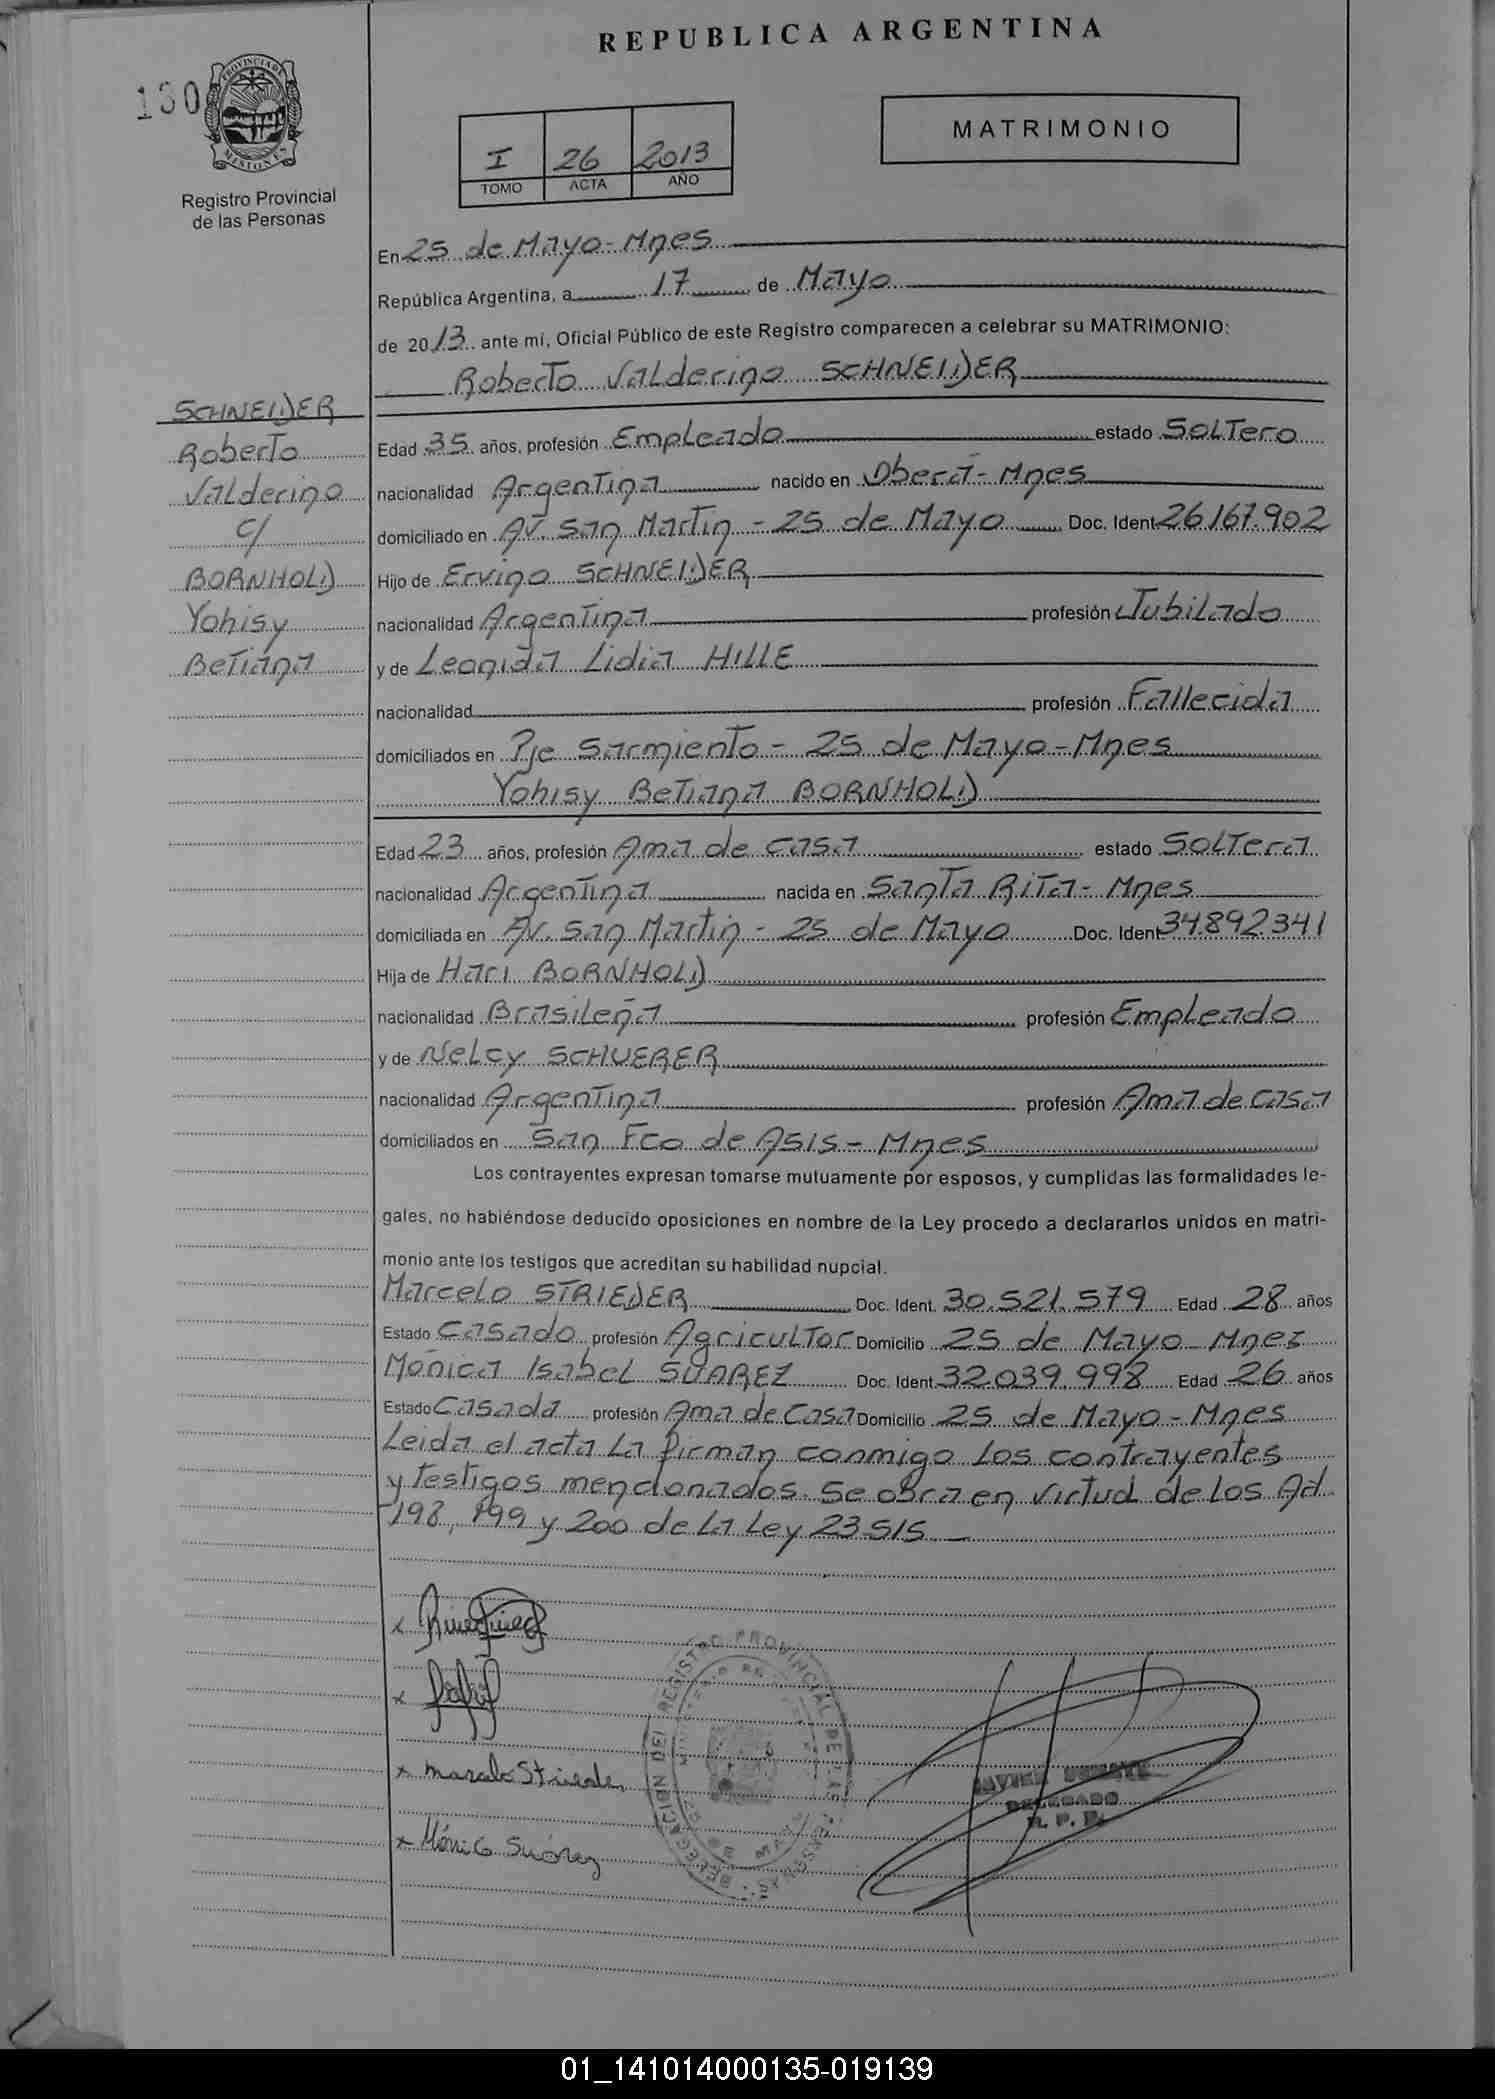 REPUBLICA ARGENTINA
130
PROVINCIA DE
MISIONES
Registro Provincial
de las Personas
I 26 2013
TOMO ACTA AÑO
MATRIMONIO
En 25 de Mayo - Mnes
República Argentina, a 17 de Mayo
de 2013 ante mí, Oficial Público de este Registro comparecen a celebrar su MATRIMONIO:
Roberto Valderino SCHNEIDER
SCHNEIDER
Roberto
Valderino
c/
BORNHOLD
Yohisy
Betiana
Edad 35 años, profesión Empleado estado Soltero
nacionalidad Argentina nacido en Oberá - Mnes
domiciliado en Av. San Martin - 25 de Mayo Doc. Ident 26.167.902
Hijo de Ervino SCHNEIDER
nacionalidad Argentina profesión Jubilado
y de Leonida Lidia HILLE
nacionalidad profesión Fallecida
domiciliados en Pje Sarmiento - 25 de Mayo - Mnes
Yohisy Betiana BORNHOLD
Edad 23 años, profesión Ama de casa estado Soltera
nacionalidad Argentina nacida en Santa Rita - Mnes
domiciliada en Av. San Martin - 25 de Mayo Doc. Ident 34.892.341
Hija de Hari BORNHOLD
nacionalidad Brasileña profesión Empleado
y de Nelcy SCHUERER
nacionalidad Argentina profesión Ama de casa
domiciliados en San Fco de Asis - Mnes
Los contrayentes expresan tomarse mutuamente por esposos, y cumplidas las formalidades le-
gales, no habiéndose deducido oposiciones en nombre de la Ley procedo a declararlos unidos en matri-
monio ante los testigos que acreditan su habilidad nupcial.
Marcelo STRIEDER Doc. Ident. 30.521.579 Edad 28 años
Estado Casado profesión Agricultor Domicilio 25 de Mayo - Mnes
Mónica Isabel SUAREZ Doc. Ident. 32.039.998 Edad 26 años
Estado Casada profesión Ama de Casa Domicilio 25 de Mayo - Mnes
Leida el acta la firman conmigo los contrayentes
y testigos mencionados. Se obra en virtud de los Art.
198, 199 y 200 de la Ley 23.515
x
x
x Marcelo Strieder
x Mónica Suárez
DELEGACION DEL REGISTRO PROVINCIAL DE LAS PERSONAS
25 DE MAYO
JAVIER
DELEGADO
R. P. P.
01_141014000135-019139